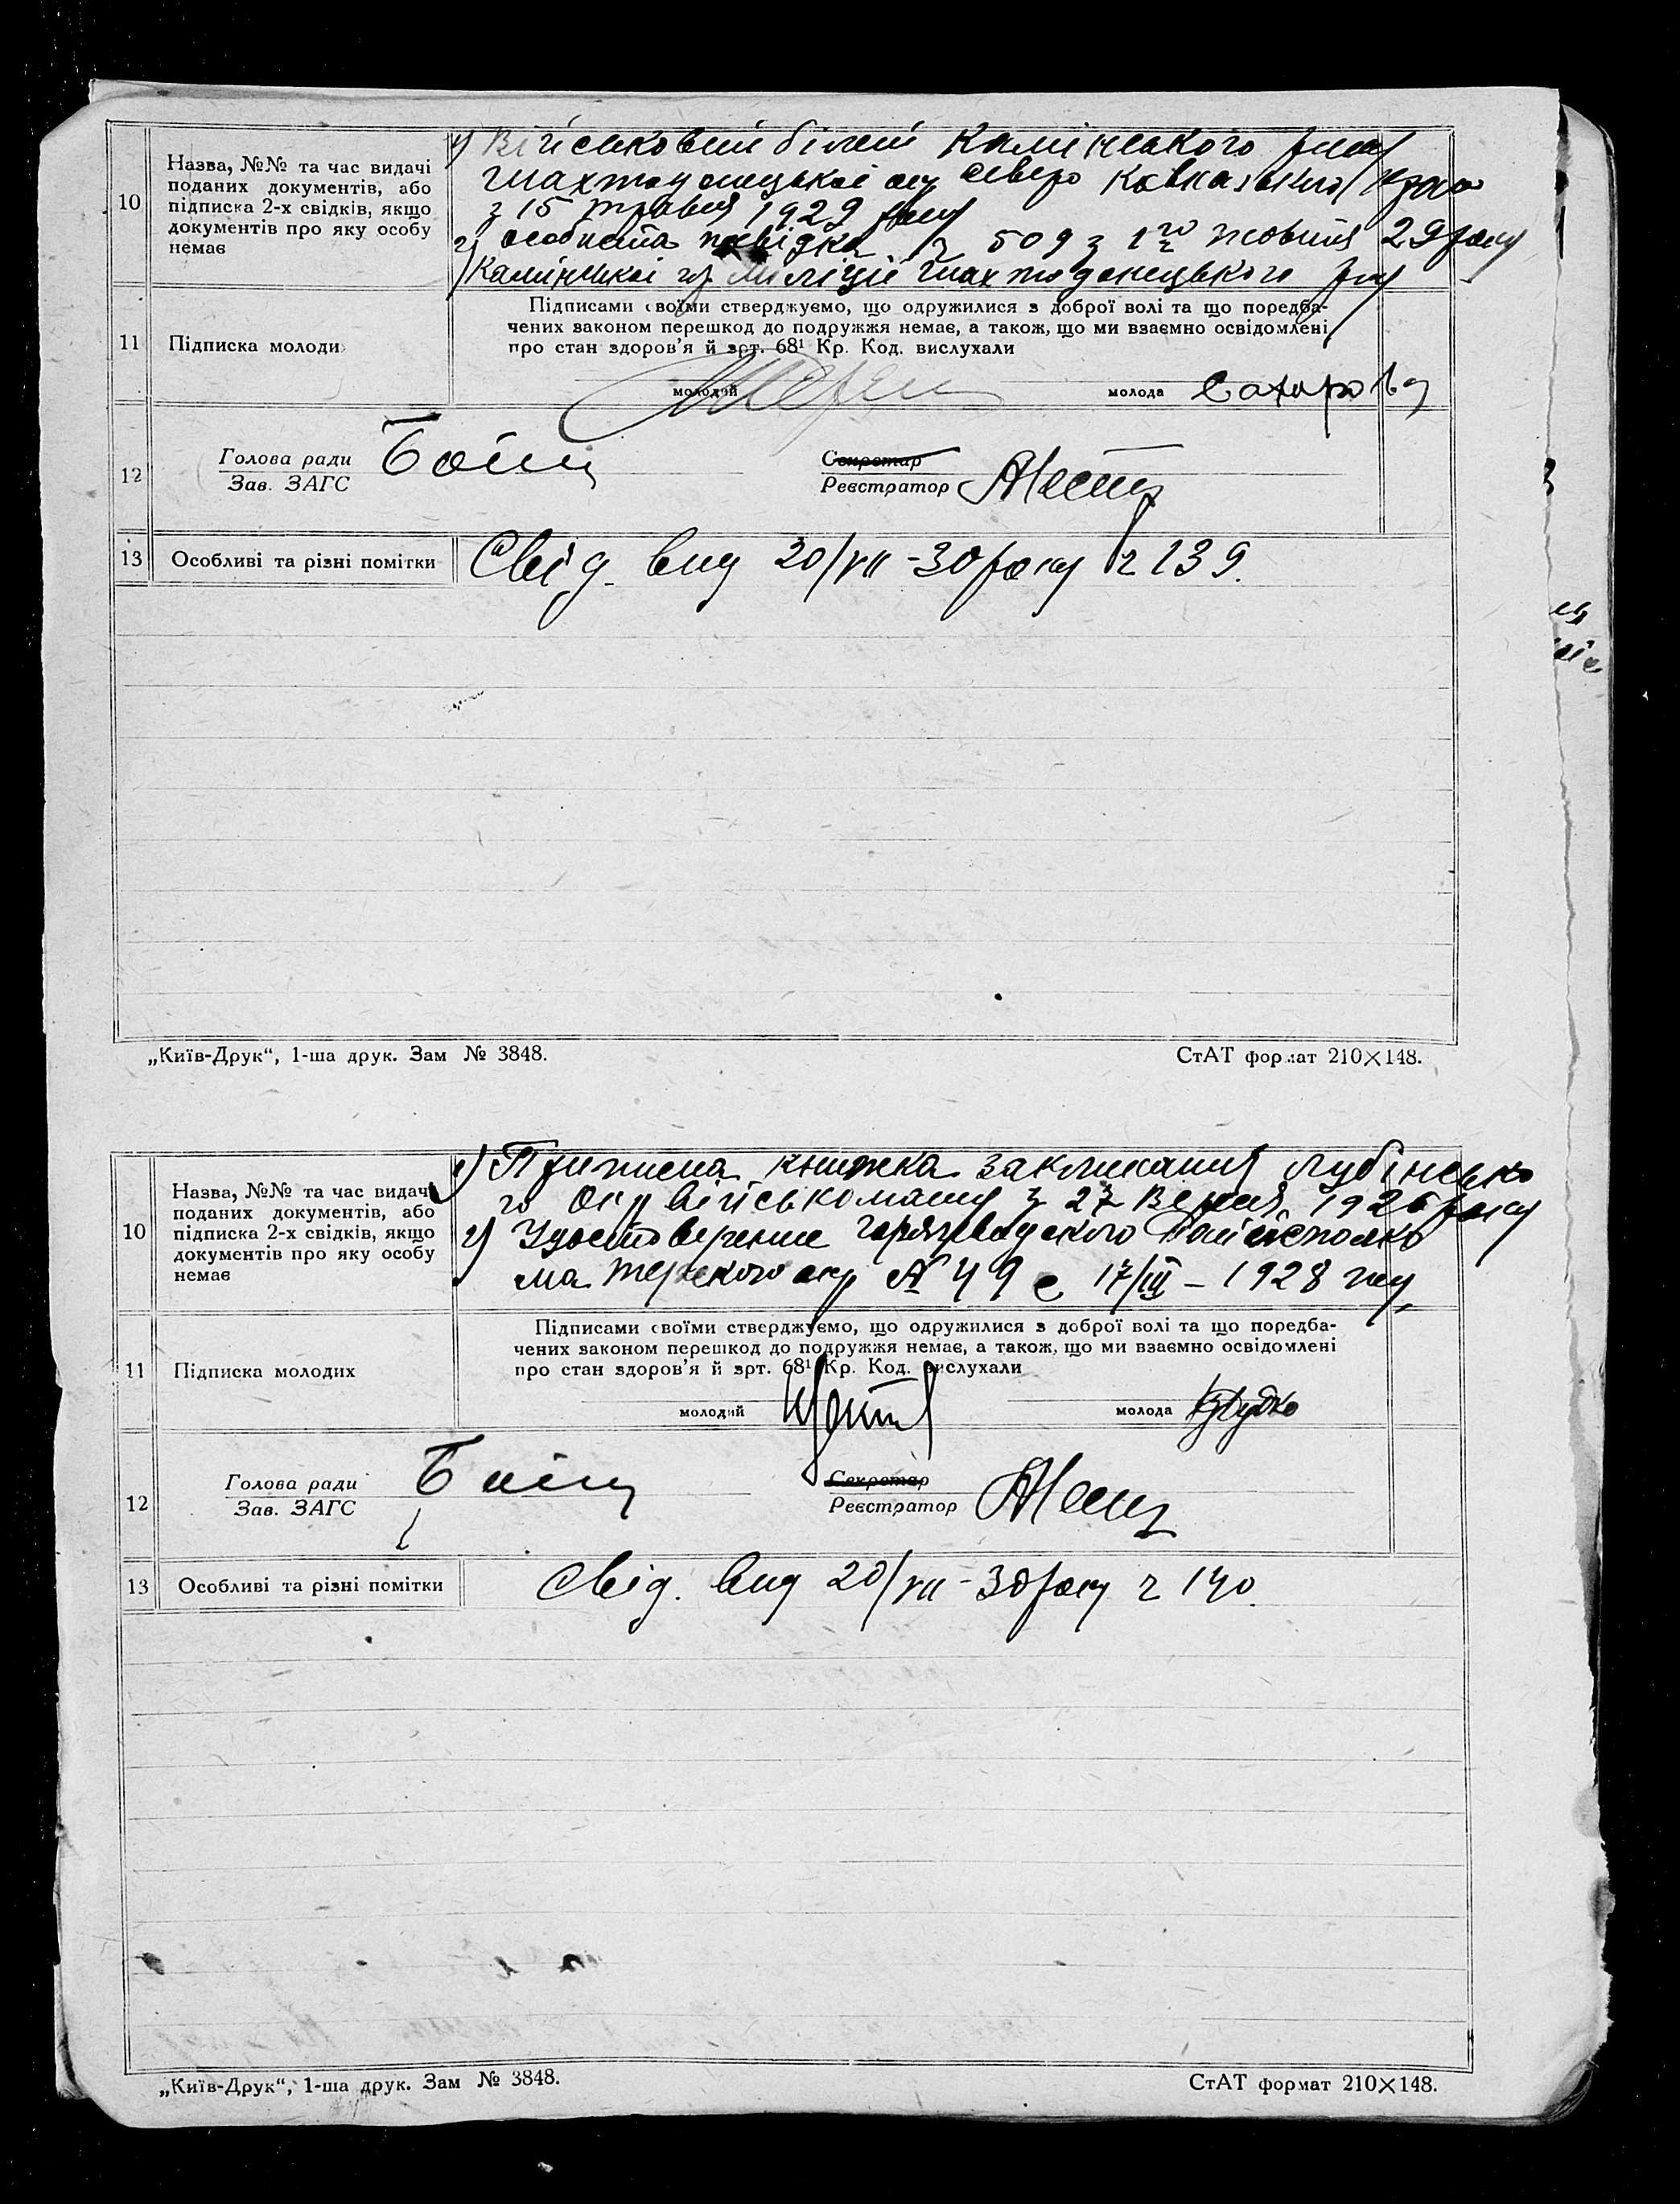 10
Назва, №№ та час видачі
поданих документів, або
підписка 2-х свідків, якщо
документів про яку особу
немає
1) Військовий білет Камінського
Шахтодонецької окр Северо Кавказького краю
з 15 травня 1929 року
2) особиста посвідка ч 509 з 1го жовтня 29 року
Камінської міліції Шахтодонецького
11
Підписка молоди
Підписами своїми стверджуємо, що одружилися з доброї волі та що поредба-
чених законом перешкод до подружжя немає, а також, що ми взаємно освідомлені
про стан здоров'я й зрт. 68¹ Кр. Код. вислухали
молодий
молода
12
Голова ради
Зав. ЗАГС
Секретар
Реєстратор
13
Особливі та різні помітки
Свід. вид 20/VII - 30 року ч 139.
„Київ-Друк“, 1-ша друк. Зам № 3848.
СтАТ формат 210×148.
10
Назва, №№ та час видач
поданих документів, або
підписка 2-х свідків, якщо
документів про яку особу
немає
1) Приписна книжка закликания Лубінсько
го Окр військомату з 27 1926 року
2) Удостоверение Горячеводского Райисполко
ма Терского окр № 49 с 17/III - 1928 году
11
Підписка молодих
Підписами своїми стверджуємо, що одружилися з доброї волі та що поредба-
чених законом перешкод до подружжя немає, а також, що ми взаємно освідомлені
про стан здоров'я й зрт. 68¹ Кр. Код. вислухали
молодий
молода
12
Голова ради
Зав. ЗАГС
Секретар
Реєстратор
13
Особливі та різні помітки
Свід. вид 20/VII - 30 року ч 140.
„Київ-Друк“, 1-ша друк. Зам № 3848.
СтАТ формат 210×148.